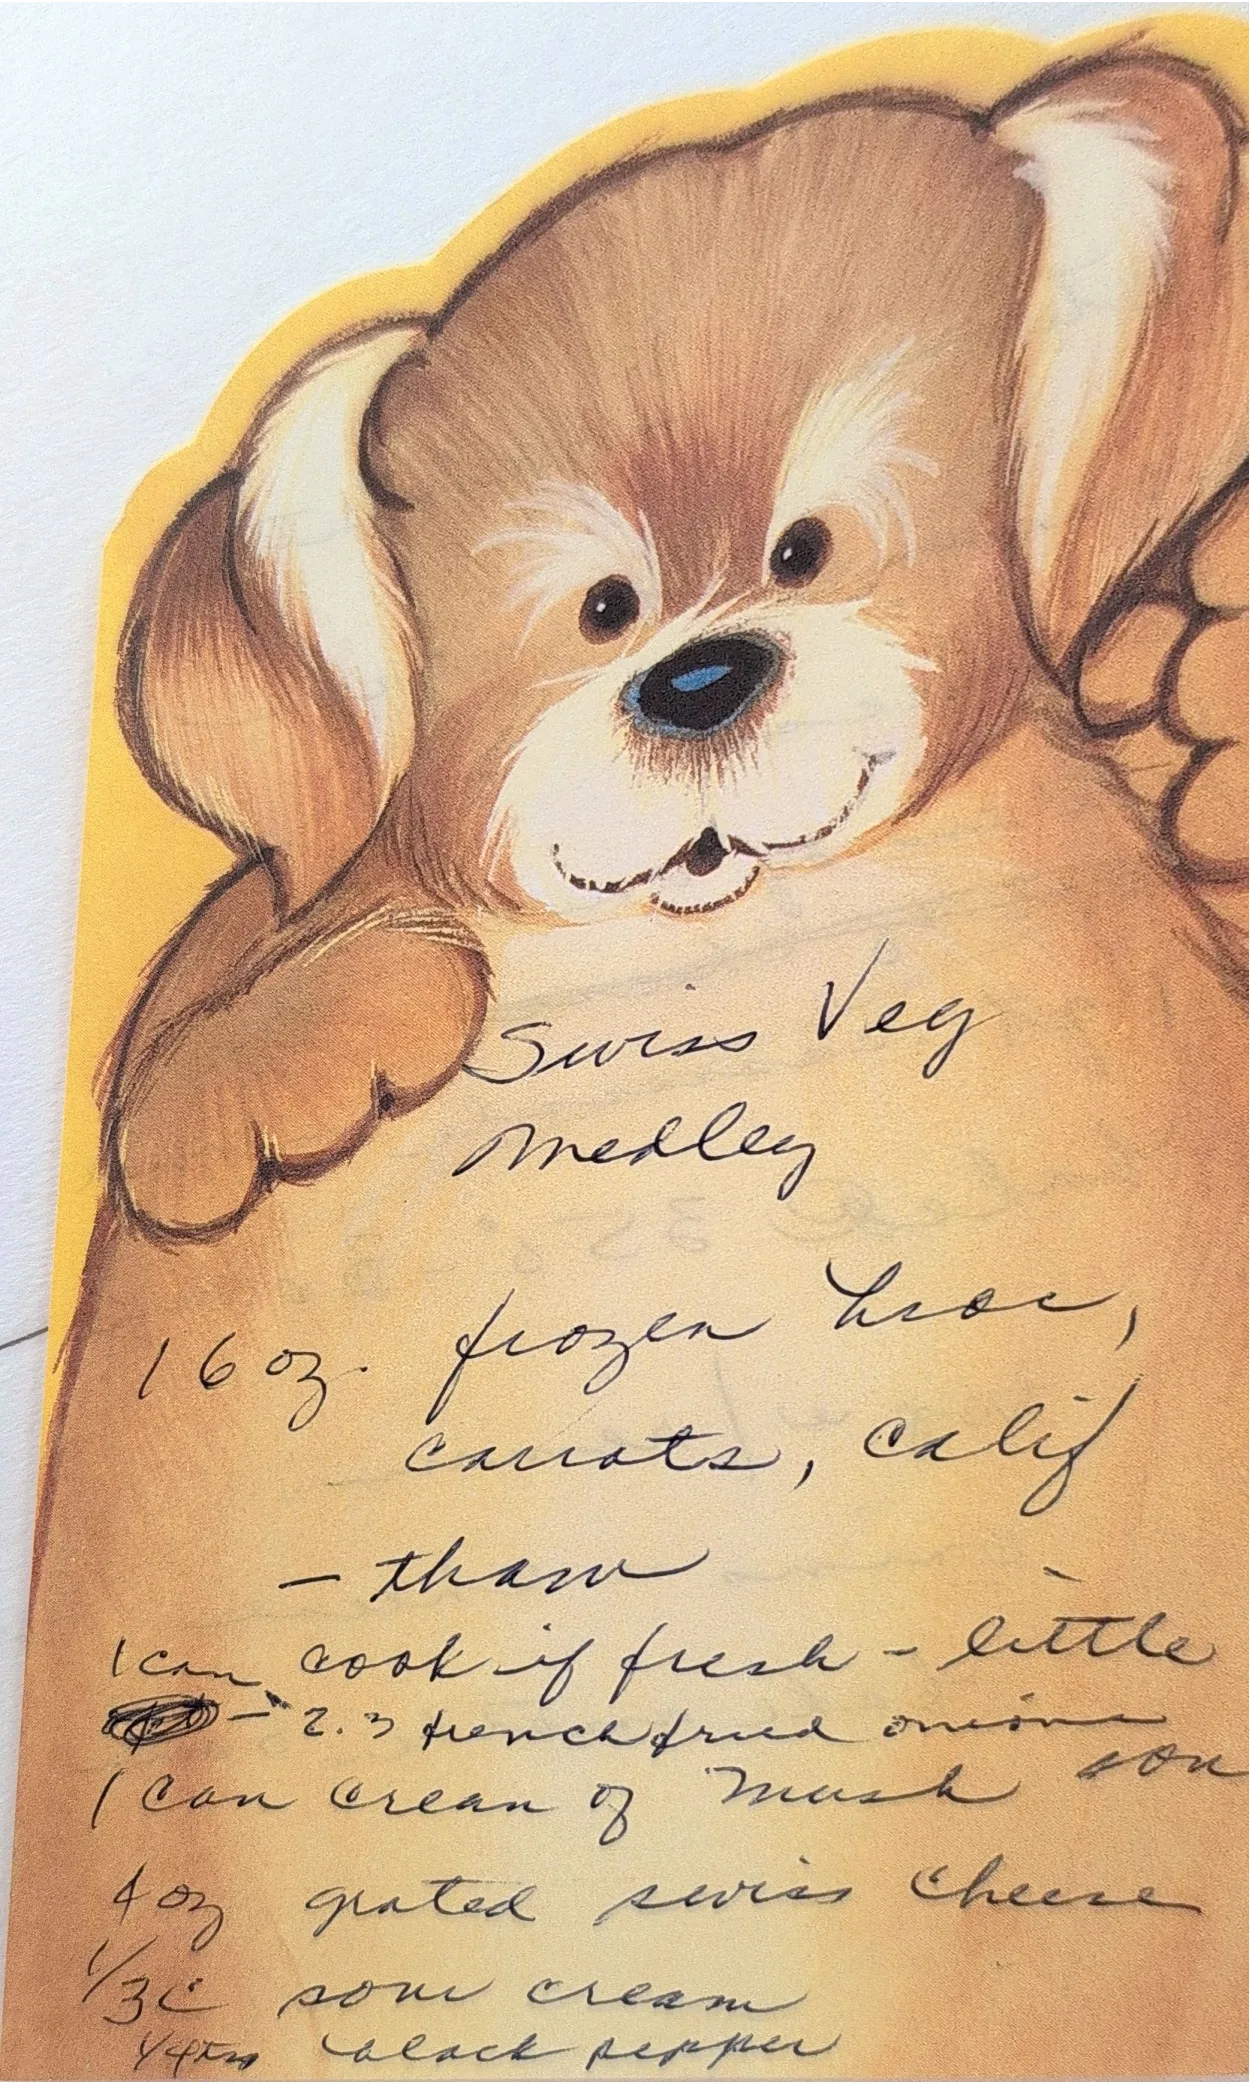 Swiss Veg
Medley
16 oz. frozen broc,
carrots, calif
- thaw
cook if fresh - little
1 can - 2.3 french fried onions
1 can cream of mush sou
4 oz grated swiss cheese
1/3 c sour cream
1/4 tsp black pepper